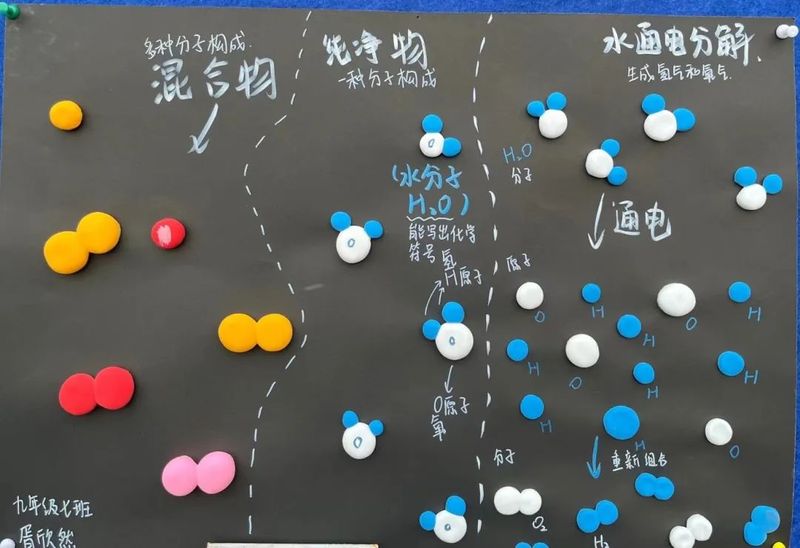 多种分子构成.
混合物
九年级七班
胥欣然
纯净物
一种分子构成
O
(水分子
H₂O)
能写出化学
符号氢
O
H原子
O
O原子
氧
O
O
水通电分解.
生成氢气和氧气.
H₂O
分子
通电
原子
O
H
O
H
H
H
O
H
H
H
H
O
重新组合
分子
O₂
H₂